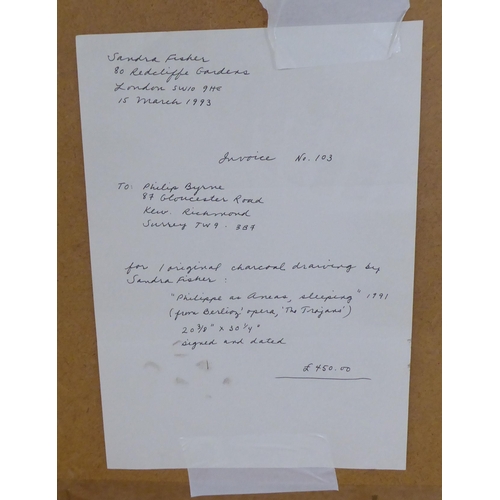 Sandra Fisher
80 Redcliffe Gardens
London SW10 9HE
15 March 1993
Invoice No. 103
TO: Philip Byrne
87 Gloucester Road
Kew. Richmond
Surrey TW9 - 3BT
for 1 original charcoal drawing by
Sandra Fisher:
"Philippe as Aneas, sleeping" 1991
(from Berlioz' opera, 'The Trojans')
20 3/8" x 30 1/4"
signed and dated
£450.00